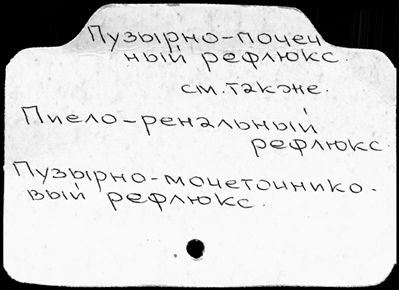 Пузырно-почеч
ный рефлюкс.
см. также.
Пиело-ренальный
рефлюкс.
Пузырно-мочеточнико.
вый рефлюкс.